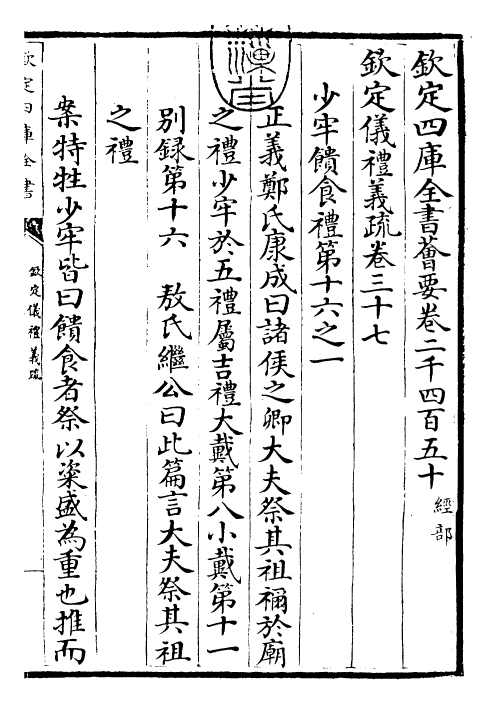 欽定四庫全書薈要卷二千四百五十 經部
欽定儀禮義疏卷三十七
少牢饋食禮第十六之一
正義鄭氏康成曰諸侯之卿大夫祭其祖禰於廟
之禮少牢於五禮屬吉禮大戴第八小戴第十一
別録第十六 敖氏繼公曰此篇言大夫祭其祖
之禮
案特牲少牢皆曰饋食者祭以粢盛為重也推而
欽定四庫全書
欽定儀禮義疏